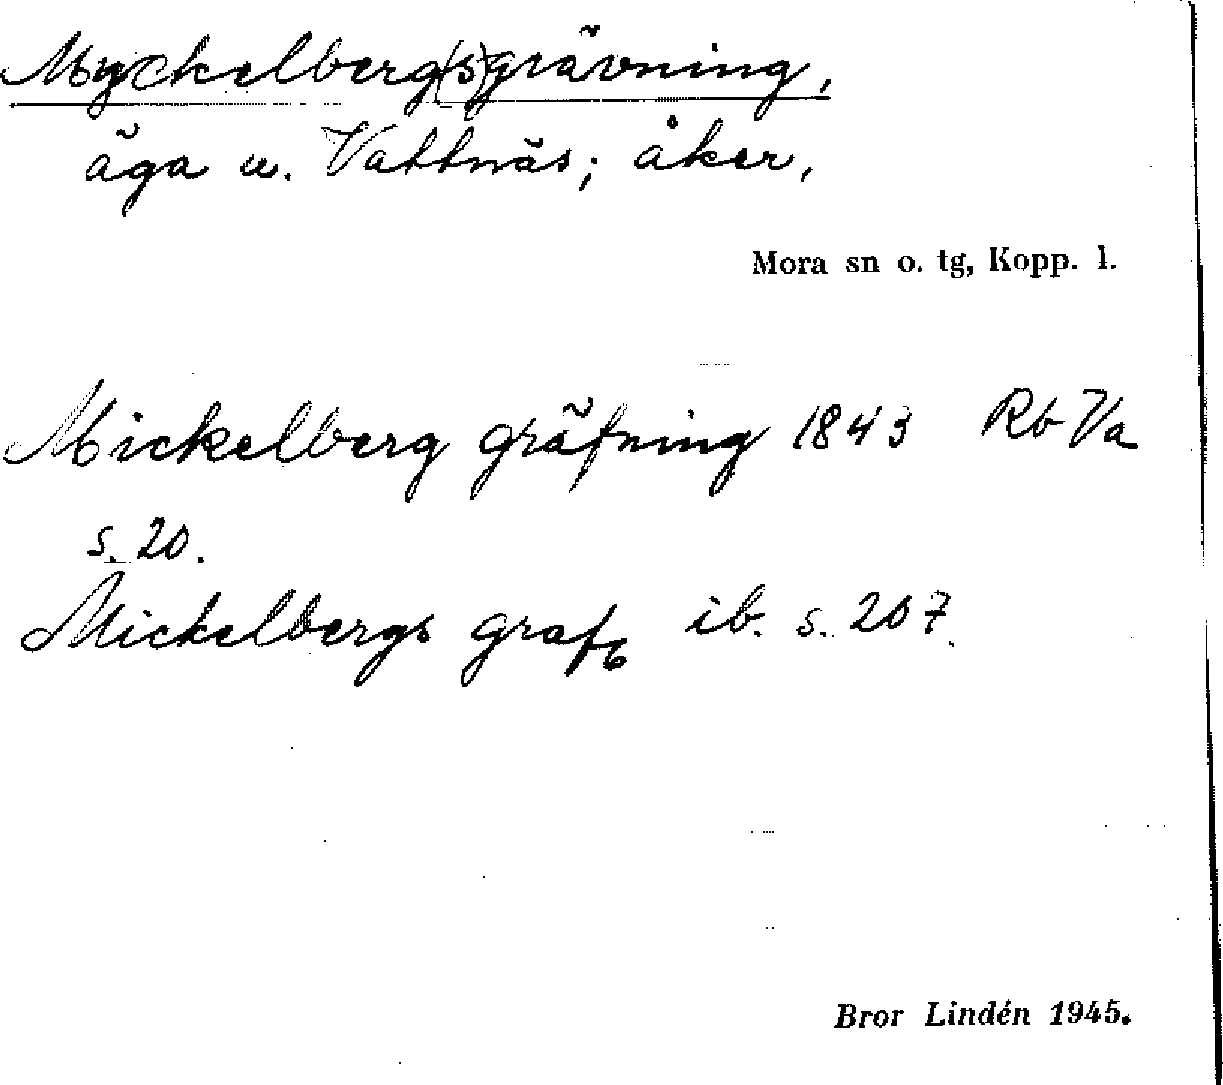 Myckelberg(s)grävning,
äga u. Vattnäs; åker,
Mora sn o. tg, Kopp. l.
Mickelberg gräfning 1843 Rb Va
s. 20.
Mickelbergs graf ib. s. 207.
Bror Lindén 1945.